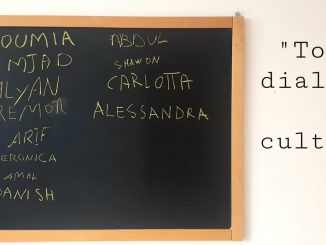 OUMIA
MJAD
LYAN
REMON
ARIF
ERONICA
AMAL
DANISH
ABDUL
SHAWON
CARLOTTA
ALESSANDRA
"To
dial
cult